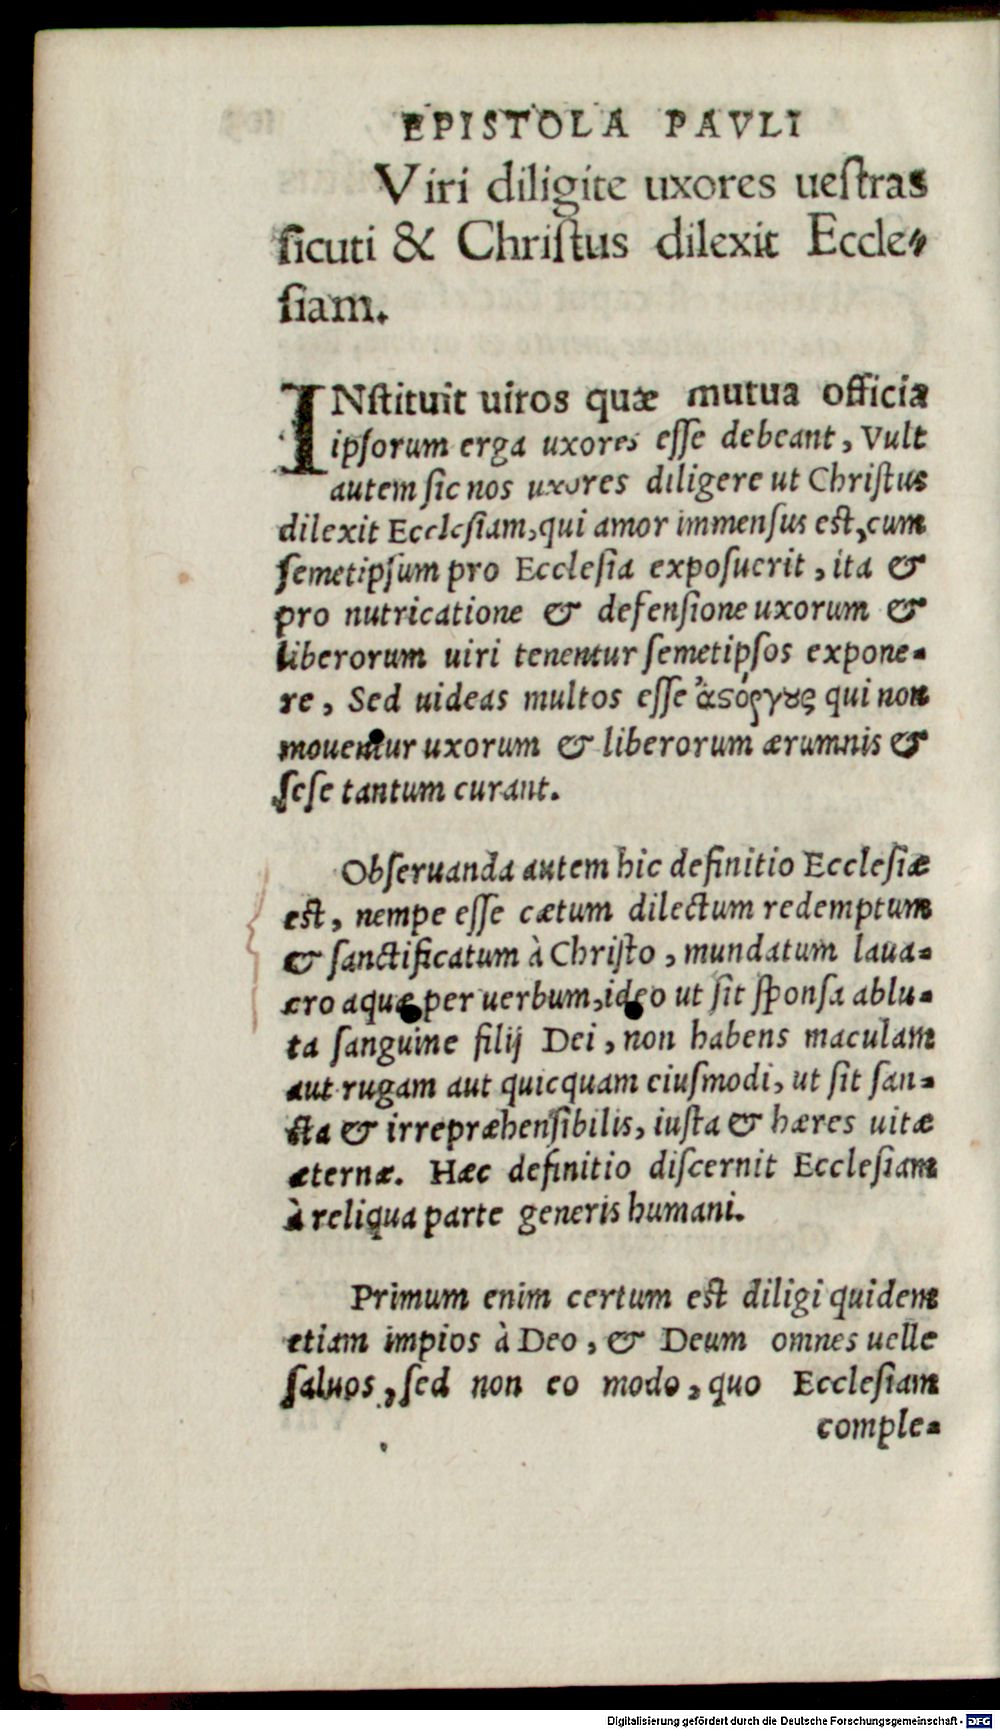 EPISTOLA PAVLI
Viri diligite uxores ueſtras
ſicuti & Chriſtus dilexit Eccle-
ſiam.
INſtituit uiros quæ mutua officia
ipſorum erga uxores eſſe debeant, Vult
autem ſic nos uxores diligere ut Chriſtus
dilexit Eccleſiam, qui amor immenſus eſt, cum
ſemetipſum pro Eccleſia expoſuerit, ita &
pro nutricatione & defenſione uxorum &
liberorum uiri tenentur ſemetipſos expone-
re, Sed uideas multos eſſe ἀϛόργȣς qui non
mouentur uxorum & liberorum ærumnis &
ſeſe tantum curant.
Obſeruanda autem hic definitio Eccleſiæ
eſt, nempe eſſe cætum dilectum redemptum
& ſanctificatum à Chriſto, mundatum laua-
cro aquæ per uerbum, ideo ut ſit ſponſa ablu-
ta ſanguine filij Dei, non habens maculam
aut rugam aut quicquam eiuſmodi, ut ſit ſan-
cta & irrepræhenſibilis, iuſta & hæres uitæ
æternæ. Hæc definitio diſcernit Eccleſiam
à reliqua parte generis humani.
Primum enim certum eſt diligi quidem
etiam impios à Deo, & Deum omnes uelle
ſaluos, ſed non eo modo, quo Eccleſiam
comple-
Digitalisierung gefördert durch die Deutsche Forschungsgemeinschaft - DFG